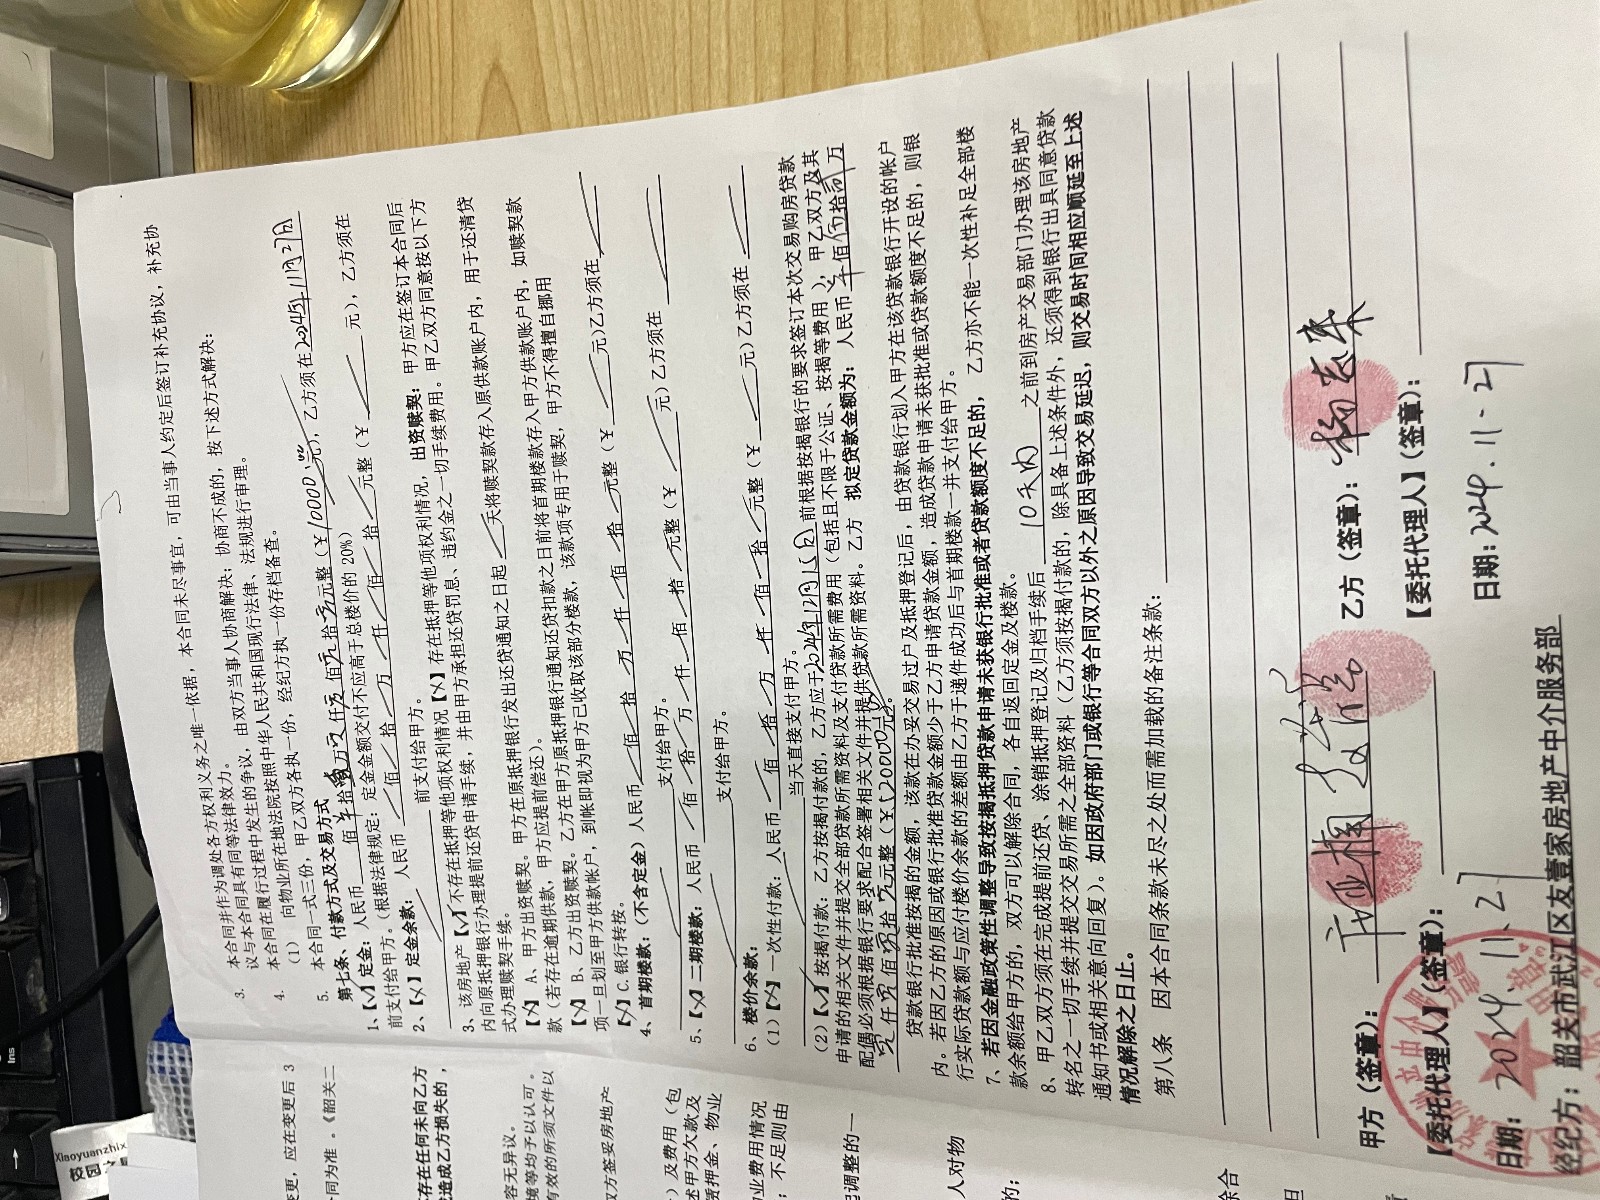 3. 本合同并作为调处各方权利义务之唯一依据，本合同未尽事宜，可由当事人约定后签订补充协议，补充协
议与本合同具有同等法律效力。
4. 本合同在履行过程中发生的争议，由双方当事人协商解决；协商不成的，按下述方式解决：
（1） 向物业所在地法院按照中华人民共和国现行法律、法规进行审理。
5. 本合同一式三份，甲乙双方各执一份，经纪方执一份存档备查。
第七条、付款方式及交易方式
1、【√】定金：人民币 佰 拾 万 仟 佰 拾 元整（￥10000 元），乙方须在2024年11月27日
前支付给甲方。（根据法律规定：定金金额交付不应高于总楼价的 20%）
2、【×】定金余款： 人民币 佰 拾 万 仟 佰 拾 元整（￥ 元），乙方须在
前支付给甲方。
3、该房地产【√】不存在抵押等他项权利情况【×】存在抵押等他项权利情况，出资赎契：甲方应在签订本合同后
内向原抵押银行办理提前还贷申请手续，并由甲方承担还贷罚息、违约金之一切手续费用。甲乙双方同意按以下方
式办理赎契手续。
【×】 A、甲方出资赎契。甲方在原抵押银行发出还贷通知之日起 天将赎契款存入原供款账户内，用于还清贷
款（若存在逾期供款，甲方应提前偿还）。
【×】 B、乙方出资赎契。乙方在甲方原抵押银行通知还贷扣款之日前将首期楼款存入甲方供款账户内，如赎契款
项一旦划至甲方供款帐户，到帐即视为甲方已收取该部分楼款，该款项专用于赎契，甲方不得擅自挪用
【×】C. 银行转按。
4、首期楼款：（不含定金）人民币 佰 拾 万 仟 佰 拾 元整（￥ 元)乙方须在
支付给甲方。
5、【×】二期楼款：人民币 佰 拾 万 仟 佰 拾 元整（￥ 元）乙方须在
支付给甲方。
6、楼价余款：
（1）【×】一次性付款：人民币 佰 拾 万 仟 佰 拾 元整（￥ 元）乙方须在
当天直接支付甲方。
（2）【√】按揭付款：乙方按揭付款的，乙方应于2024年12月 日前根据按揭银行的要求签订本次交易购房贷款
申请的相关文件并提交全部贷款所需资料及支付贷款所需费用（包括且不限于公证、按揭等费用），甲乙双方及其
配偶必须根据银行要求配合签署相关文件并提供贷款所需资料。乙方 拟定贷款金额为：人民币 佰 拾 万
仟 佰 拾 元整（￥ 元）。
贷款银行批准按揭的金额，该款在办妥交易过户及抵押登记后，由贷款银行划入甲方在该贷款银行开设的帐户
内。若因乙方的原因或银行批准贷款金额少于乙方申请贷款金额，造成贷款申请未获批准或贷款额度不足的，则银
行实际贷款额与应付楼价余款的差额由乙方于递件成功后与首期楼款一并支付给甲方。
7、若因金融政策性调整导致按揭抵押贷款申请未获银行批准或者贷款额度不足的， 乙方亦不能一次性补足全部楼
款余额给甲方的，双方可以解除合同，各自返回定金及楼款。
8、甲乙双方须在完成提前还贷、涂销抵押登记及归档手续后 10天内 之前到房产交易部门办理该房地产
转名之一切手续并提交交易所需之全部资料（乙方须按揭付款的，除具备上述条件外，还须得到银行出具同意贷款
通知书或相关意向回复）。如因政府部门或银行等合同双方以外之原因导致交易延迟，则交易时间相应顺延至上述
情况解除之日止。
第八条 因本合同条款未尽之处而需加载的备注条款：
甲方（签章）： 乙方（签章）：
【委托代理人】（签章）： 【委托代理人】（签章）：
日期：2024.11.27 日期：2024.11.27
经纪方：韶关市武江区友壹家房地产中介服务部
变更，应在变更后 3
同为准。《韶关二
存在任何未向乙方
或造成乙方损失的，
容无异议。
境等均予以认可。
有效的所须文件以
双方签妥房地产
）及费用（包
述甲方欠款及
费押金、物业
业费用情况
；不足则由
调整的一
人对物
的；
综合
Ins
Xiaoyuanzhix